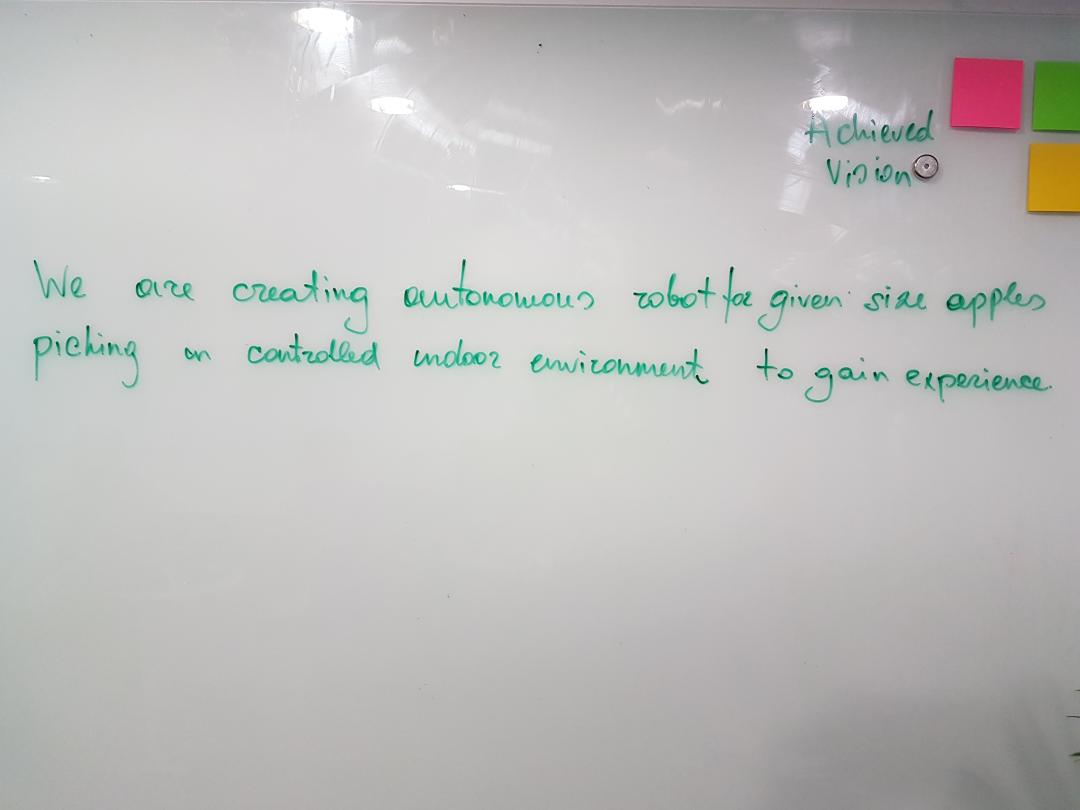 Achieved
Vision
We are creating autonomous robot for given size apples
picking in controlled indoor environment to gain experience.